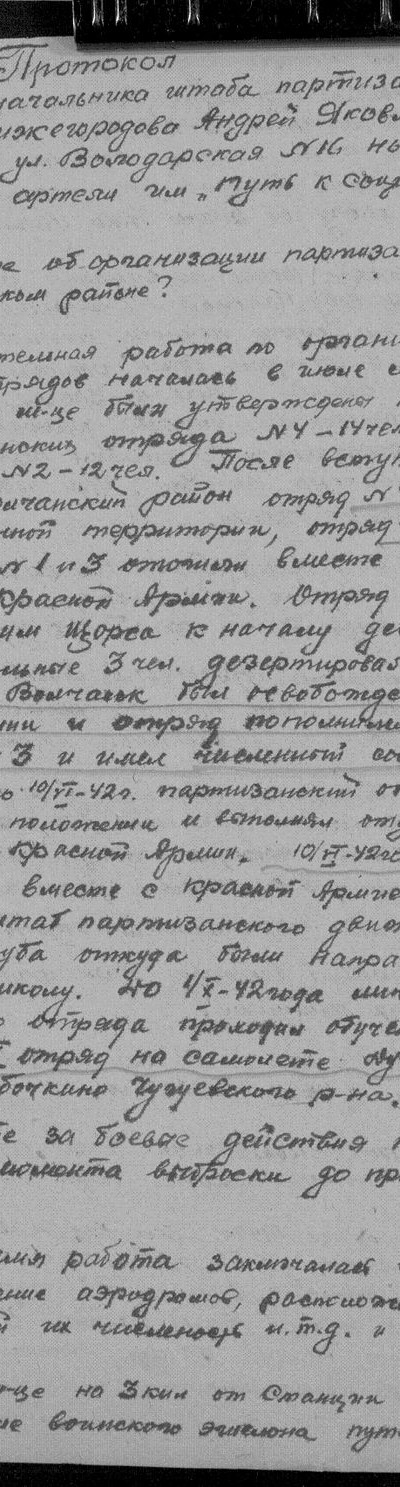 Протокол
начальника штаба партиза
ижегородова Андрей Яковл
ул. Володарская N16 на
артели им „Путь к соци

е об организации партиза
ком районе?

тельная работа по органи
трядов началась в июле
м-це были утверждены
нских отряда N4 – 14чел
N2 – 12чел. После вступ
лчанский район отряд N
нной территории, отряд
N 1 и 3 отошли вместе
Красной Армии. Отряд
им Щорса к началу де
льные 3 чел. дезертировал
Волчанск был освобожде
ии и отряд пополнился
3 и имел численный сос
о 10/VI-42г. партизанский от
положении и выполнял
Красной Армии. 10/VI-42го
вместе с Красной Армие
штаб партизанского движ
уба откуда были напра
школу. До 1/X-42года
отряда проходил обуче
отряд на самолете
бочкино Чугуевского р-на.
е за боевые действия
момента выброски до пр

емя работа заключалась
ние аэродромов, располож
й их численность и.т.д. и

це на 3 км от Станции
ие воинского эшелона пут